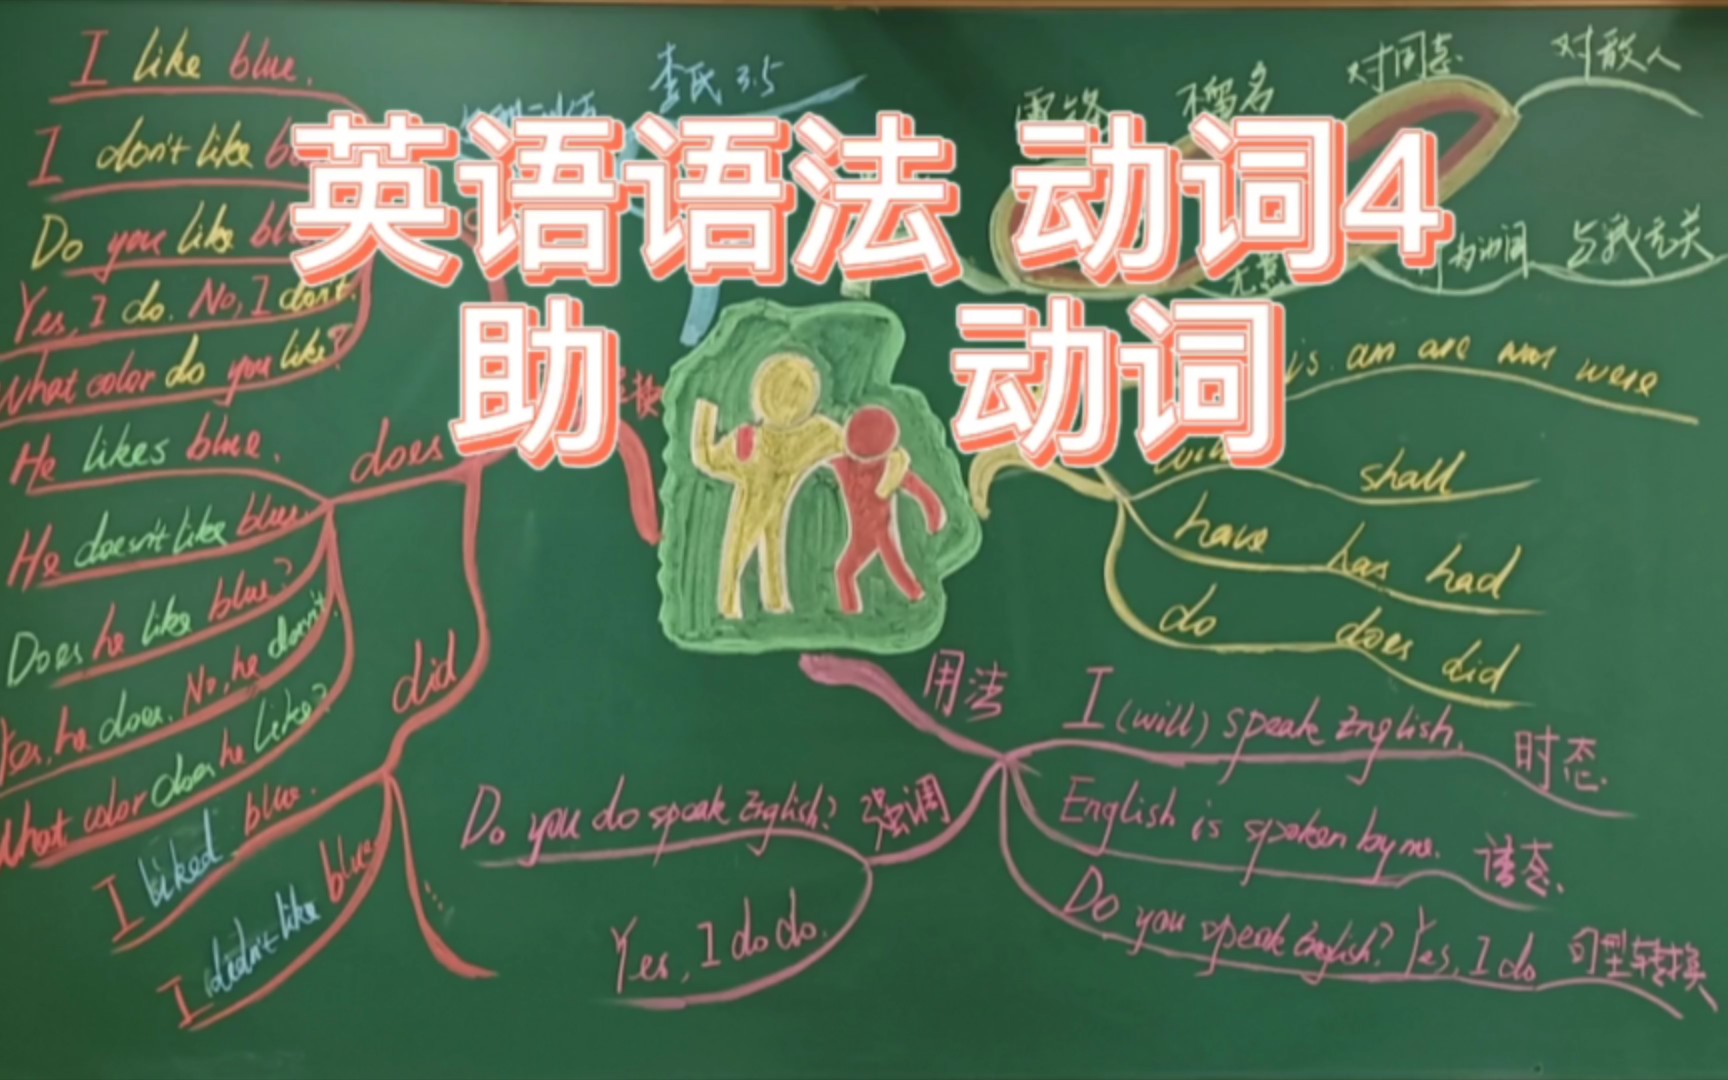 英语语法 动词4
助 动词
李氏 3.5
不留名
对同志
对敌人
与我无关
I like blue.
I don't like
Do you like
Yes, I do. No, I don't.
What color do you like?
does
He likes blue.
He doesn't like blue.
Does he like blue?
Yes, he does. No, he
What color does he like?
did
I liked blue.
I didn't like blue
is am are was were
shall
have has had
do does did
用法
I (will) speak English. 时态.
English is spoken by me. 语态.
Do you speak English? Yes, I do 句型转换
Do you do speak English? 强调
Yes, I do do.